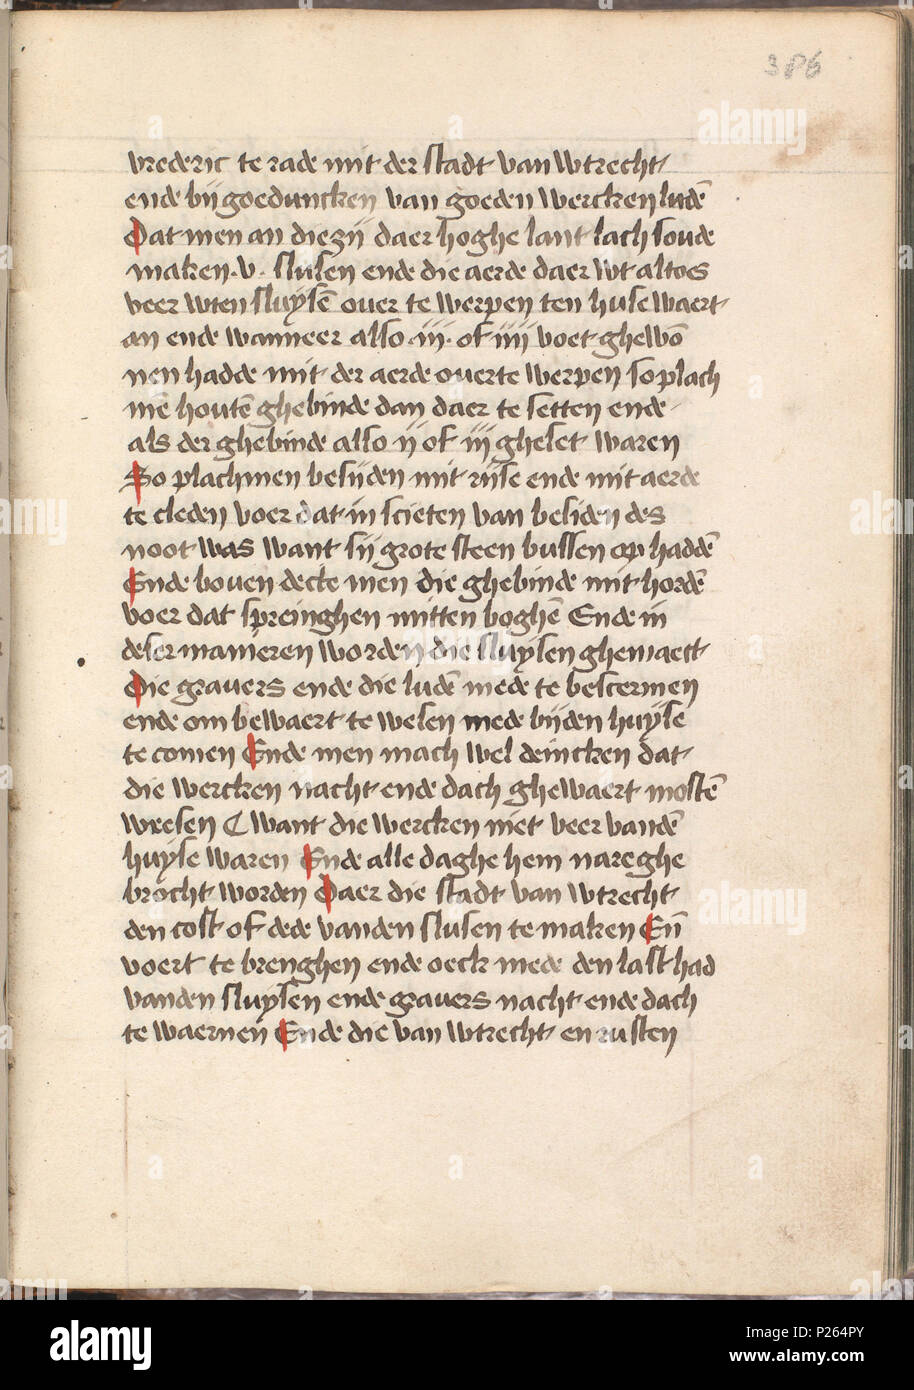 386
vrederic te rade mit der stadt van wtrecht
ende bij goeduncken van goeden wercken ludē
Dat men an die zij daer hoghe lant lach soude
maken .v. slusen ende die aerde daer wt altoes
veer wten sluysē over te werpen ten huse waert
an ende wanneer also .iij. of iiij voet ghewō
nen hadde mit der aerde overte werpen so plach
mē houtē ghebinde dan daer te setten ende
als der ghebinde also ij of iij gheset waren
So plachmen besijden mit rijse ende mit aerde
te cleden voer dat in scieten van besiden des
noot was want sij grote steen bussen op haddē
Ende boven decte men die ghebinde mit hordē
voer dat springhen mitten boghē Ende in
deser manieren worden die sluysen ghemaect
Die gravers ende die ludē mede te bescermen
ende om bewaert te wesen mede bijden huyse
te comen Ende men mach wel deincken dat
die wercken nacht ende dach ghewaert mostē
wresen want die wercken niet veer vandē
huyse waren Ende alle daghe hem nareghe
brocht worden Daer die stadt van wtrecht
den cost of dede vanden slusen te maken Eñ
voert te brenghen ende oeck mede den last had
vanden sluysen ende gravers nacht ende dach
te waernen Ende die van wtrecht en rusten
alamy
Image ID: P264PY
www.alamy.com